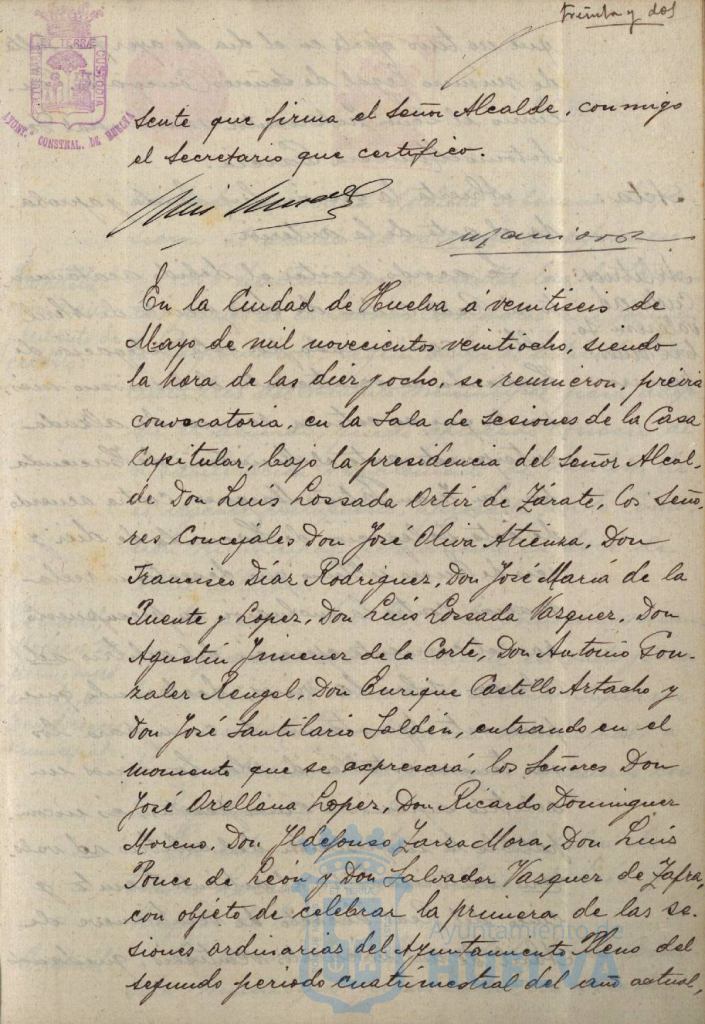 treinta y dos
AYUNT. CONSTNAL. DE HUELVA
sente que firma el Señor Alcalde, conmigo
el Secretario que certifico.
En la Ciudad de Huelva á veintiseis de
Mayo de mil novecientos veintiocho, siendo
la hora de las diez y ocho, se reunieron, prévia
convocatoria, en la Sala de Sesiones de la Casa
Capitular, bajo la presidencia del Señor Alcal-
de Don Luis Lossada Ortiz de Zárate, los Seño-
res Concejales Don José Oliva Atienza, Don
Francisco Díaz Rodriguez, Don José María de la
Puente y Lopez, Don Luis Lossada Vazquez, Don
Agustín Jimenez de la Corte, Don Antonio Gon-
zalez Rengel, Don Enrique Castillo Artacho y
Don José Santilario Saldén, entrando en el
momento que se expresará, los Señores Don
José Orellana Lopez, Don Ricardo Dominguez
Moreno, Don Ildefonso Zarza Mora, Don Luis
Ponce de León y Don Salvador Vazquez de Zafra,
con objeto de celebrar la primera de las se-
siones ordinarias del Ayuntamiento Pleno del
segundo periodo cuatrimestral del año actual,
Ayuntamiento de
HUELVA